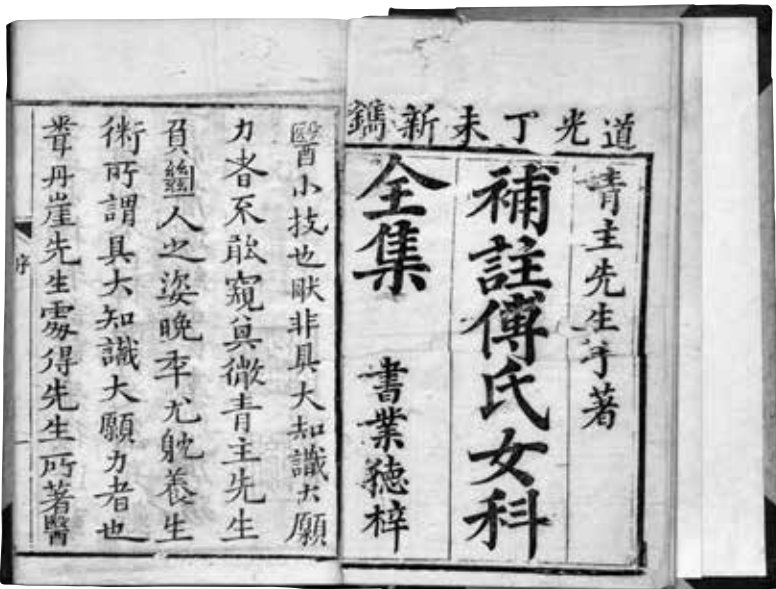 道光丁未新鐫
青主先生手著
補註傅氏女科
全集
書業德梓
醫小技也肰非具大知識大願
力者不能窺其微青主先生
負絕人之姿晚年尤躭養生
術所謂具大知識大願力者也
丹崖先生處得先生所著醫
序